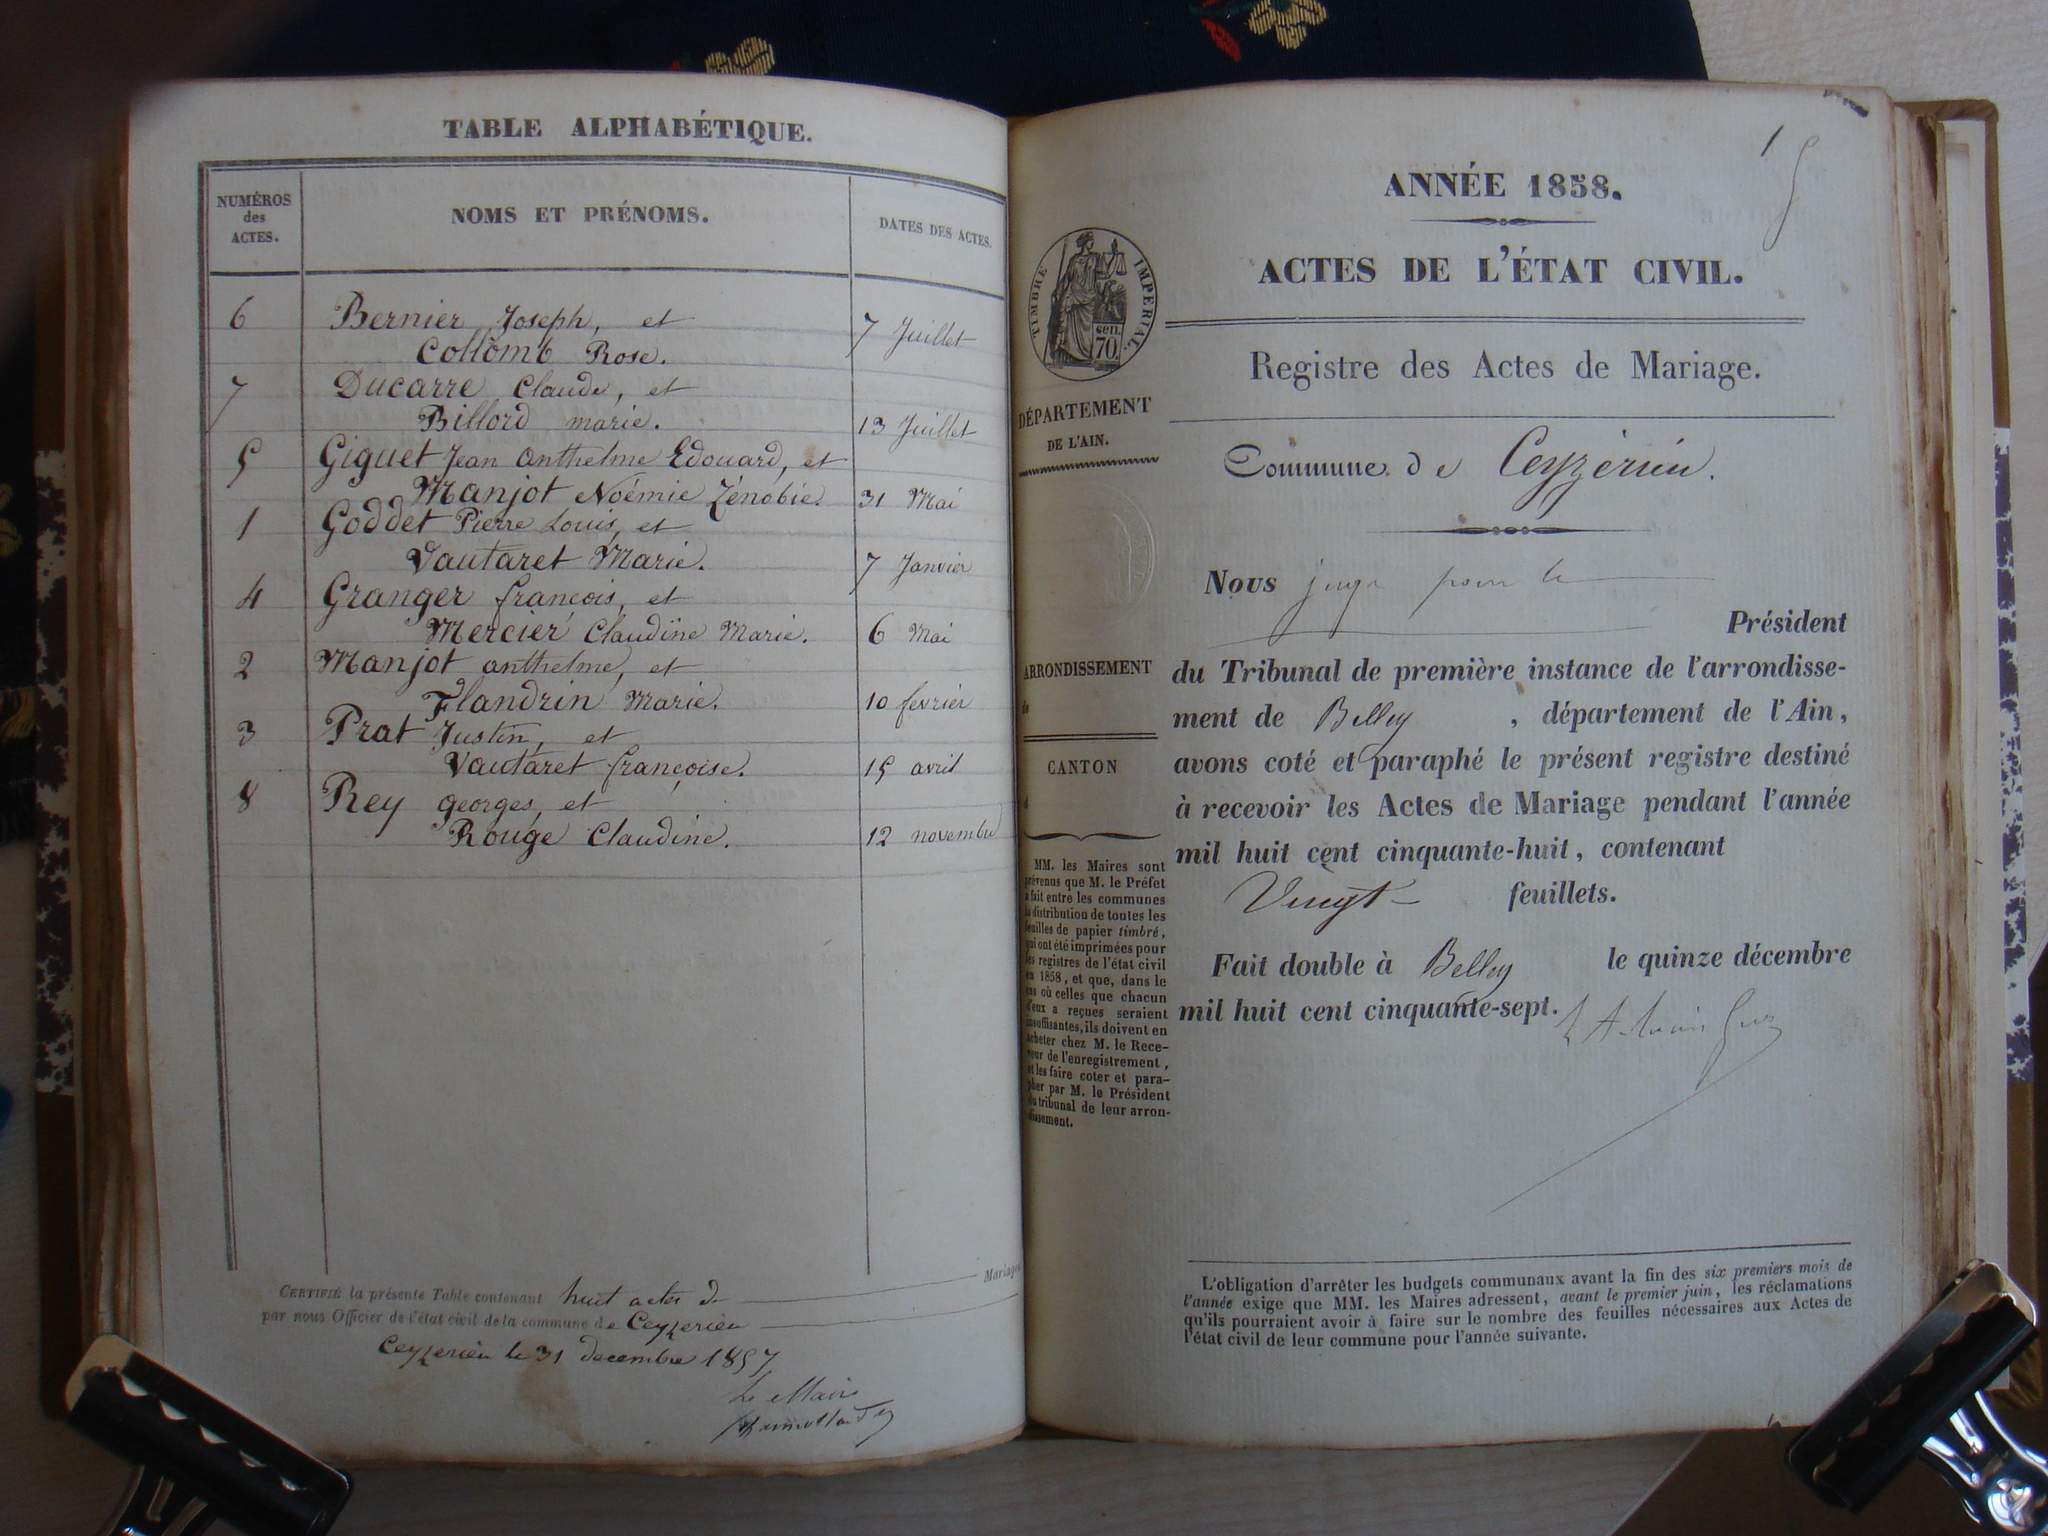 TABLE ALPHABÉTIQUE.
NUMÉROS
des
ACTES.
NOMS ET PRÉNOMS.
DATES DES ACTES.
6 Bernier Joseph, et
Collomb Rose. 7 Juillet
7 Ducarre Claude, et
Billord marie. 13 Juillet
5 Giguet Jean anthelme Edouard, et
Manjot Noémie Zénobie. 31 Mai
1 Goddet Pierre Louis, et
Vautaret Marie. 7 Janvier
4 Granger françois, et
Mercier Claudine Marie. 6 Mai
2 Manjot anthelme, et
Flandrin Marie. 10 fevrier
3 Prat Justin, et
Vautaret françoise. 15 avril
8 Rey georges, et
Rouge Claudine. 12 novembre
CERTIFIÉ la présente Table contenant huit actes de Mariages
par nous Officier de l'état civil de la commune de Ceyzerieu
Ceyzerieu le 31 decembre 1857
Le Maire
1
ANNÉE 1858.
ACTES DE L'ÉTAT CIVIL.
TIMBRE IMPERIAL.
sen.
70.
Registre des Actes de Mariage.
DÉPARTEMENT
DE L'AIN.
Commune de Ceyzérieu.
Nous juge pour le
Président
ARRONDISSEMENT
de
du Tribunal de première instance de l'arrondisse-
ment de Belley, département de l'Ain,
avons coté et paraphé le présent registre destiné
à recevoir les Actes de Mariage pendant l'année
mil huit cent cinquante-huit, contenant
Vingt feuillets.
Fait double à Belley le quinze décembre
mil huit cent cinquante-sept.
CANTON
d
MM. les Maires sont
prévenus que M. le Préfet
a fait entre les communes
la distribution de toutes les
feuilles de papier timbré,
qui ont été imprimées pour
les registres de l'état civil
en 1858, et que, dans le
cas où celles que chacun
d'eux a reçues seraient
insuffisantes, ils doivent en
acheter chez M. le Rece-
veur de l'enregistrement,
et les faire coter et para-
pher par M. le Président
du tribunal de leur arron-
dissement.
L'obligation d'arrêter les budgets communaux avant la fin des six premiers mois de
l'année exige que MM. les Maires adressent, avant le premier juin, les réclamations
qu'ils pourraient avoir à faire sur le nombre des feuilles nécessaires aux Actes de
l'état civil de leur commune pour l'année suivante.